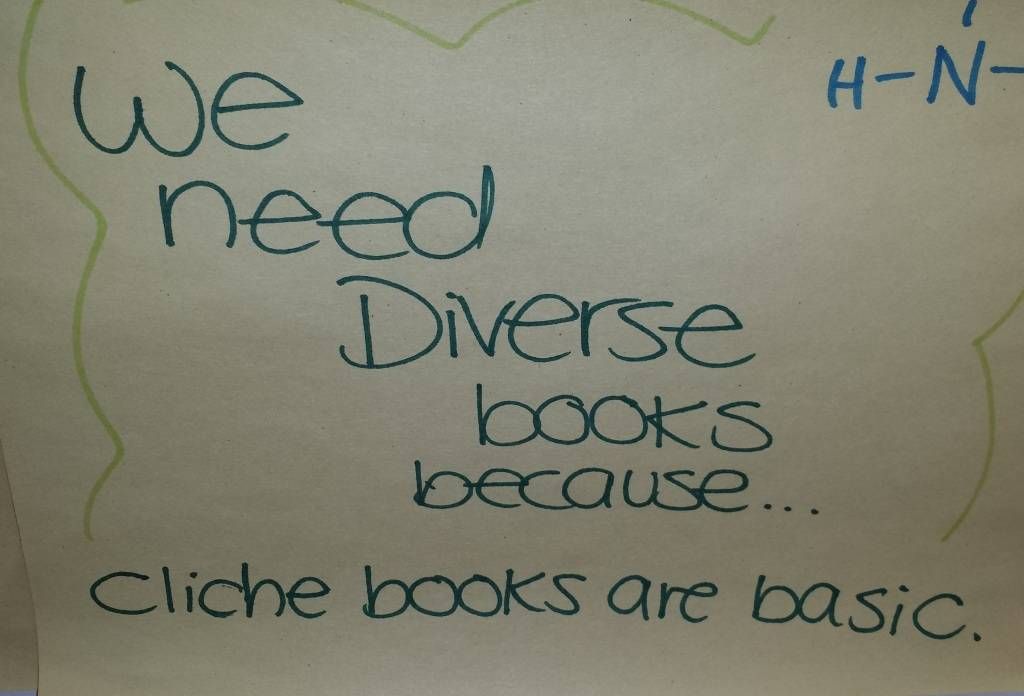 We
need
Diverse
books
because...
Cliche books are basic.
H-N-